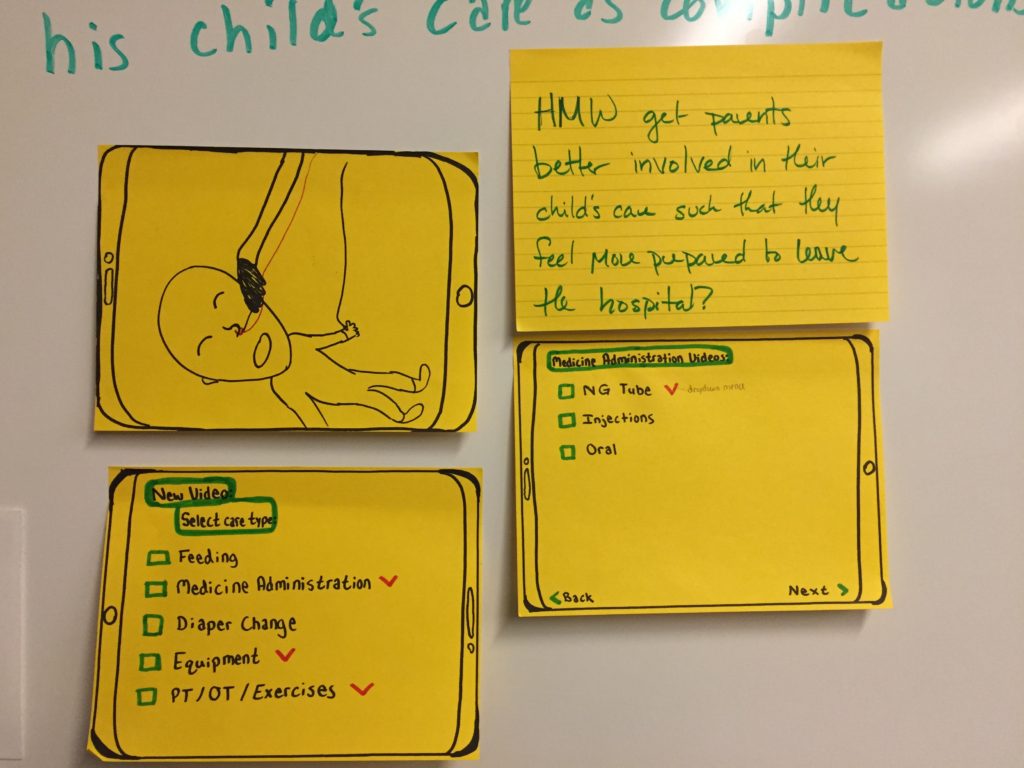 his child's care as complications
HMW get parents
better involved in their
child's care such that they
feel more prepared to leave
the hospital?
New Video:
Select care type:
Feeding
Medicine Administration
Diaper Change
Equipment
PT/OT/Exercises
Medicine Administration Videos:
NG Tube - dropdown menu
Injections
Oral
Back Next